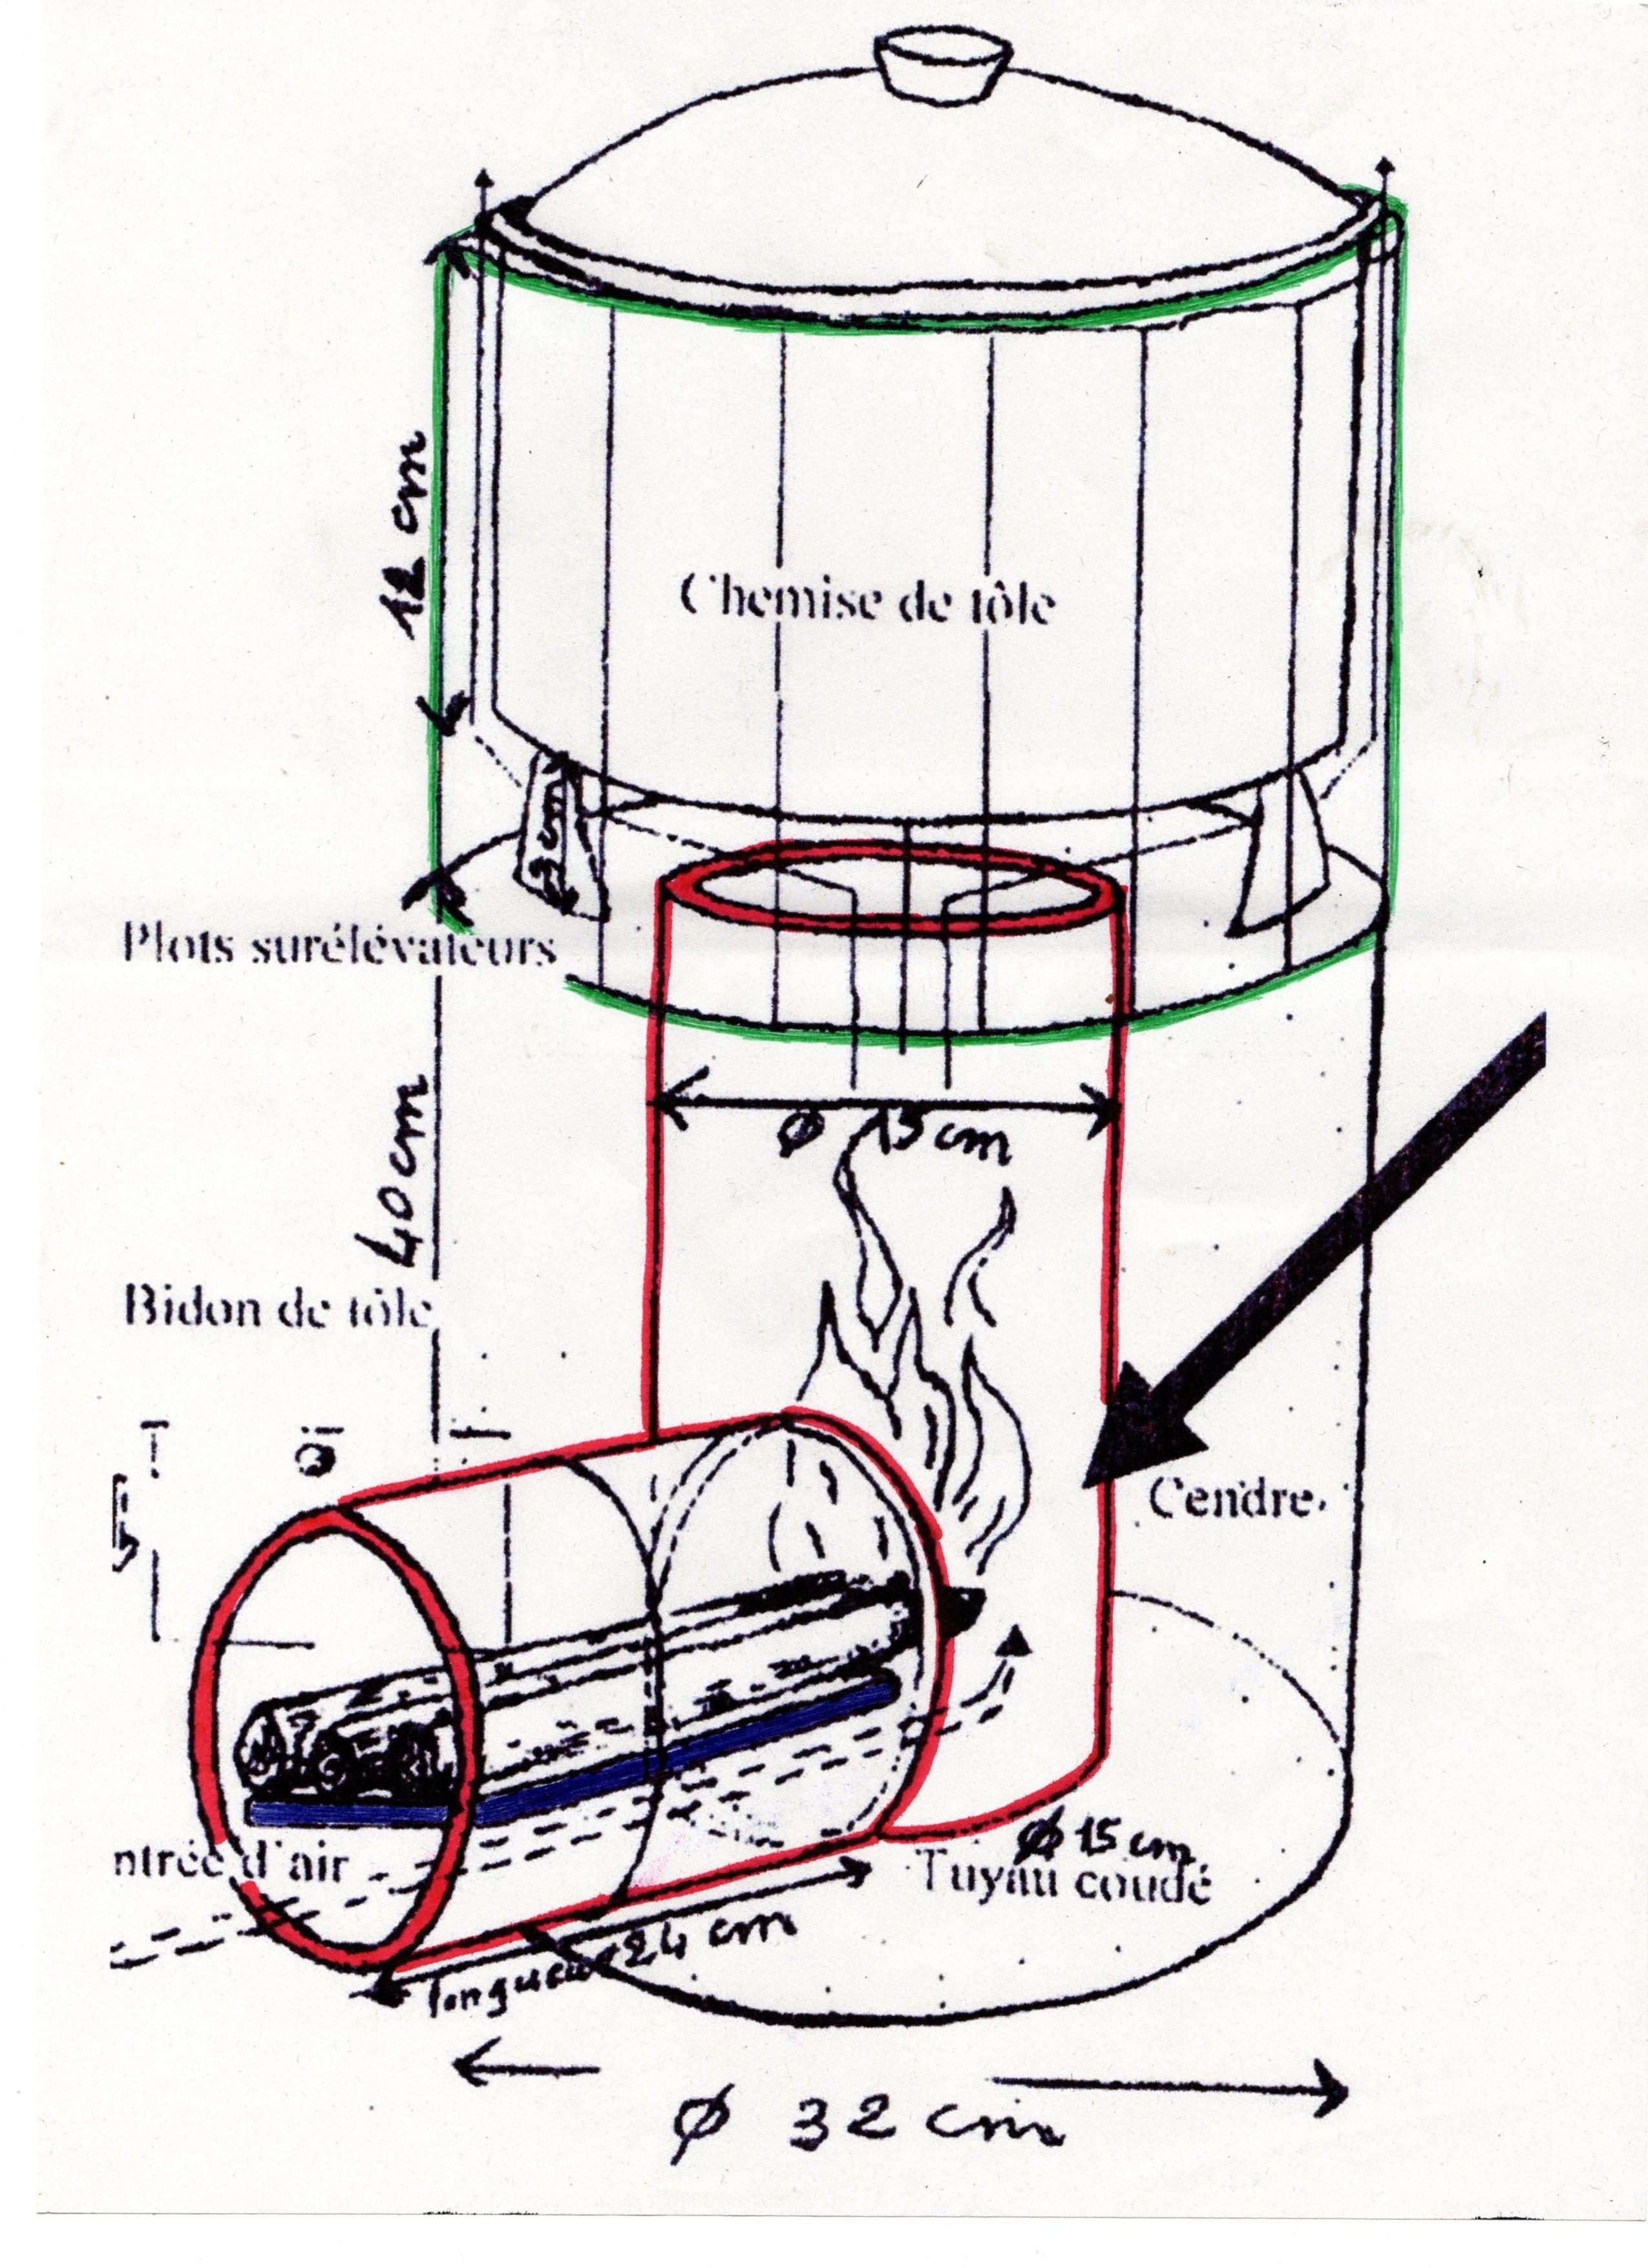 12 cm
Chemise de tôle
3 cm
Plots surélévateurs
ø 15 cm
40 cm
Bidon de tôle
Cendre.
ntrée d'air
ø 15 cm
Tuyau coudé
longueur 24 cm
ø 32 cm